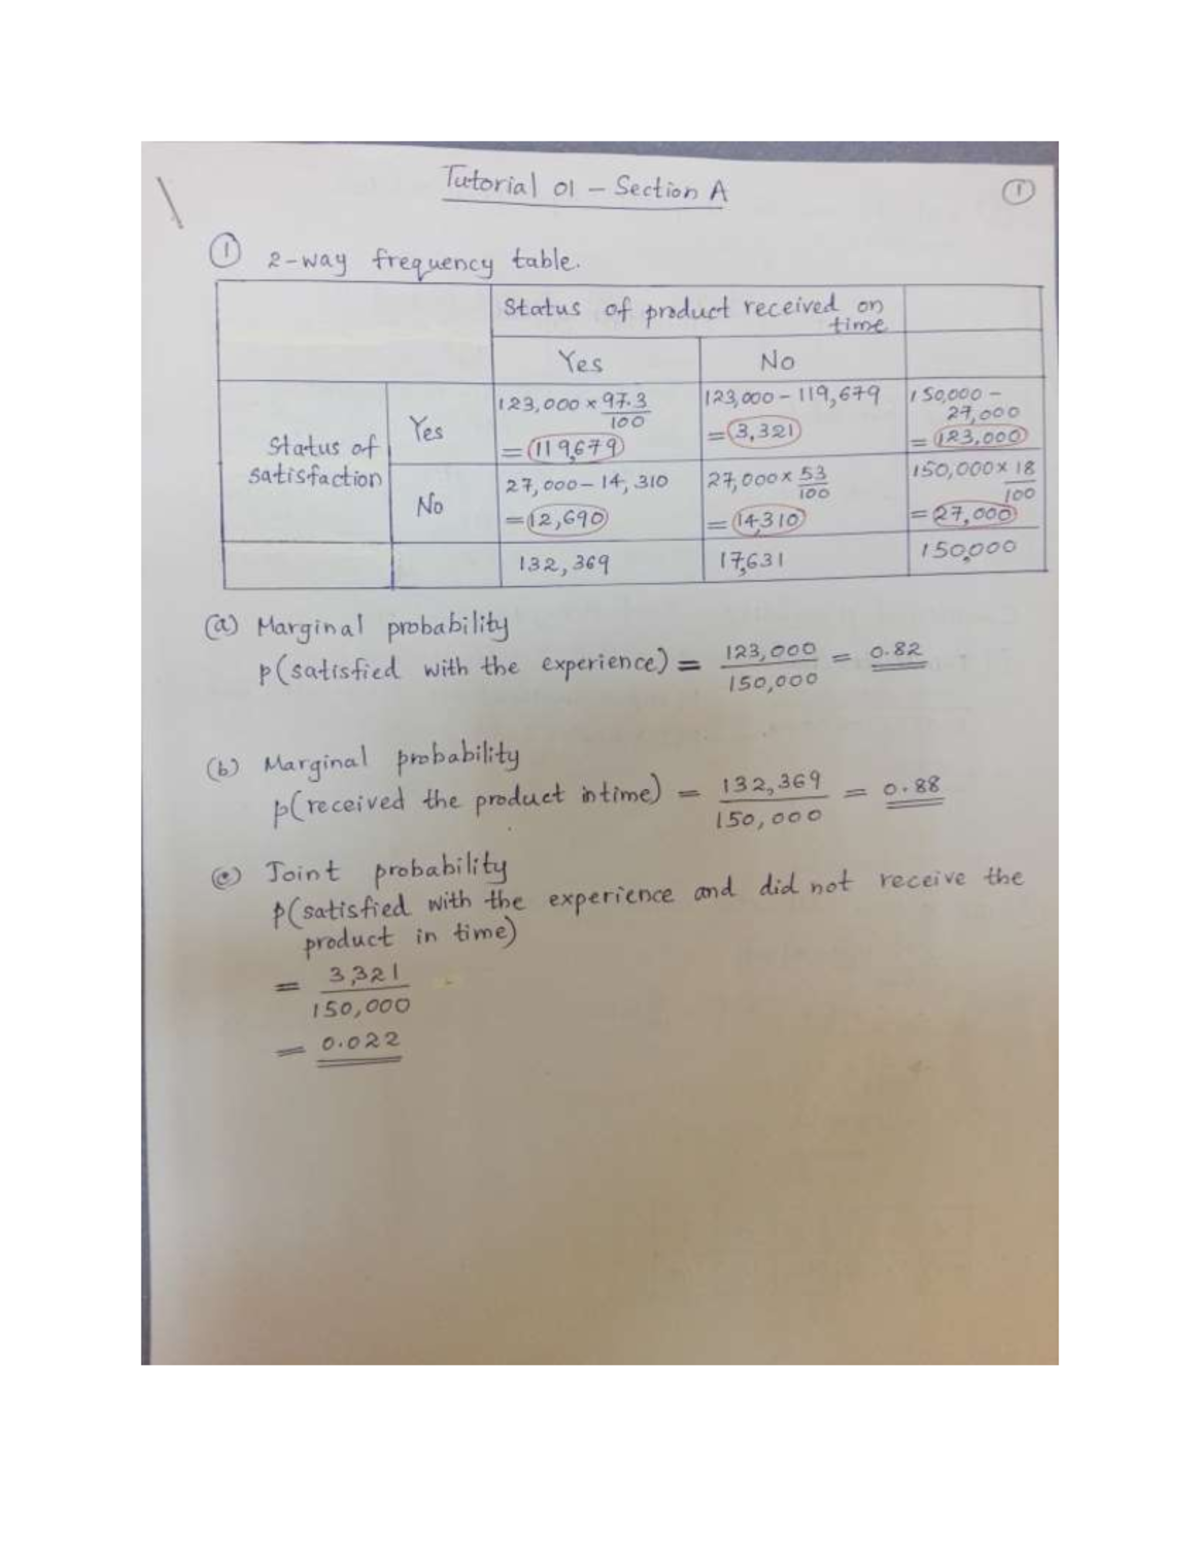 Tutorial 01 – Section A
①
① 2-way frequency table.
Status of product received on
time
Yes
No
Status of
satisfaction
Yes
123,000 × 97.3
100
= 119,679
123,000 – 119,679
= 3,321
150,000 –
27,000
= 123,000
No
27,000 – 14,310
= 12,690
27,000 × 53
100
= 14,310
150,000 × 18
100
= 27,000
132,369
17,631
150,000
(a) Marginal probability
p(satisfied with the experience) = 123,000 = 0.82
150,000
(b) Marginal probability
p(received the product in time) = 132,369 = 0.88
150,000
(c) Joint probability
p(satisfied with the experience and did not receive the
product in time)
= 3,321
150,000
= 0.022